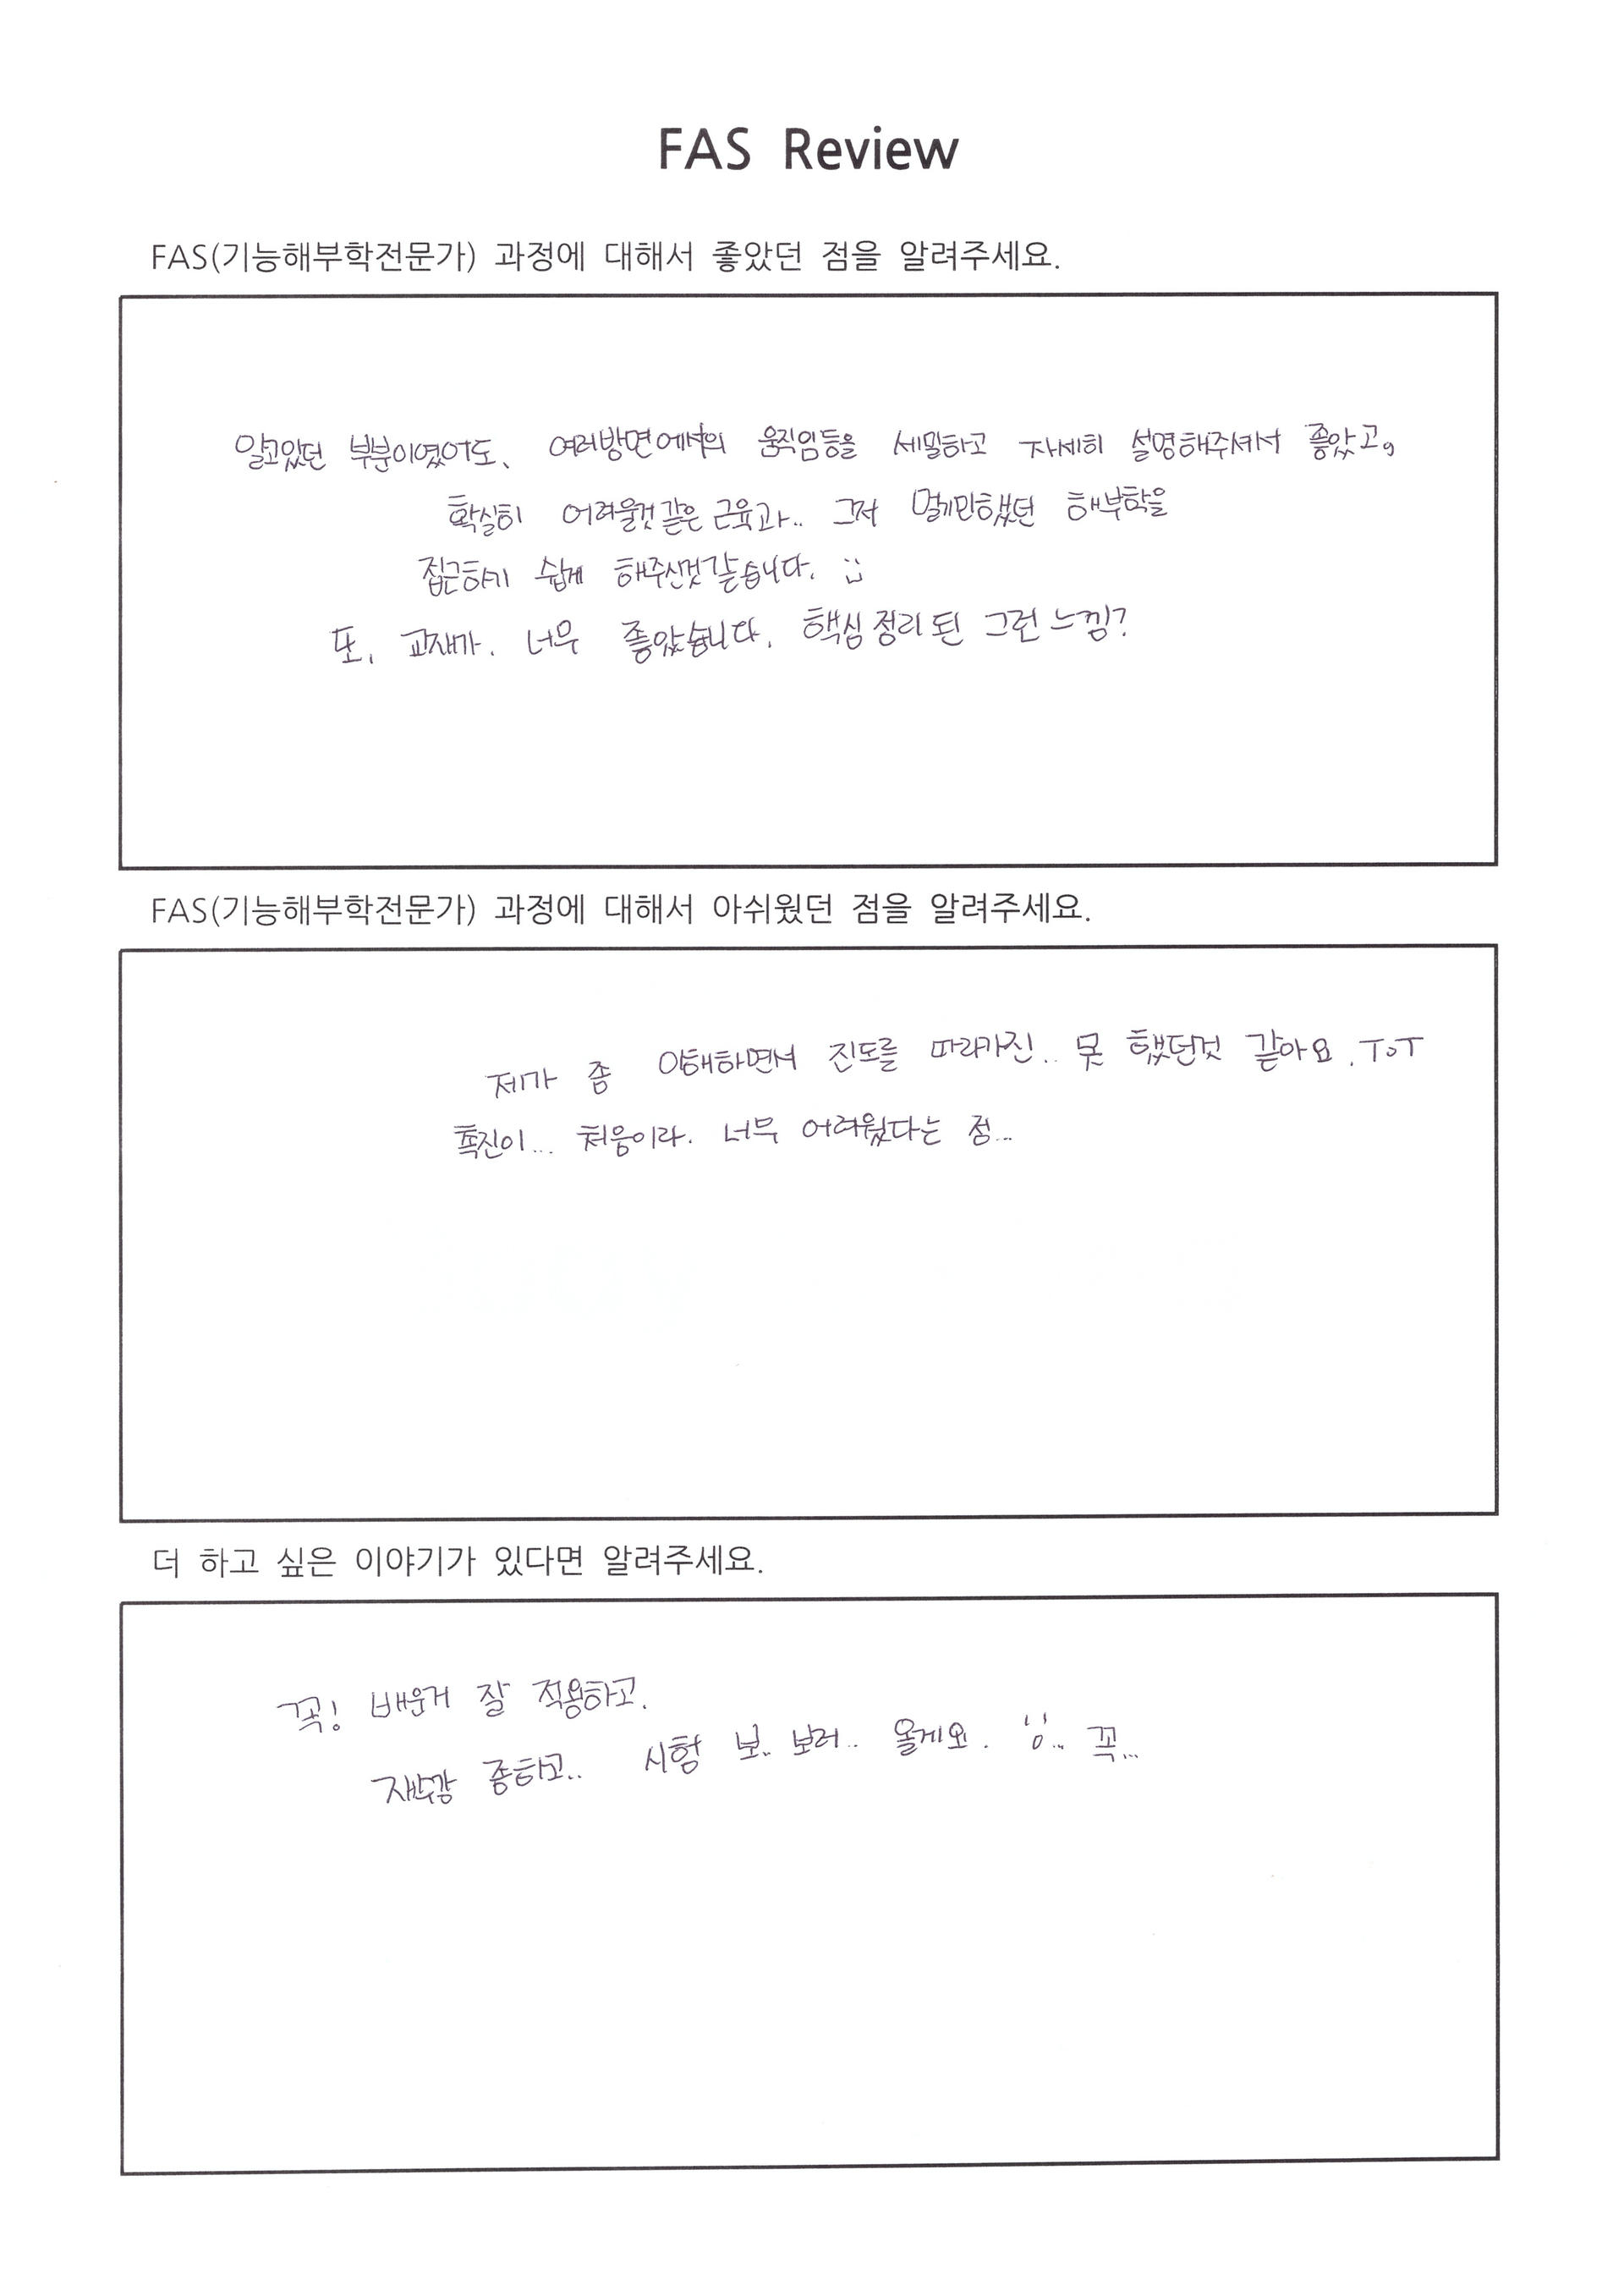 FAS Review
FAS(기능해부학전문가) 과정에 대해서 좋았던 점을 알려주세요.
알고있던 부분이였어도, 여러방면에서의 움직임등을 세밀하고 자세히 설명해주셔서 좋았고。
확실히 어려울것 같은 근육과.. 그저 멀게만했던 해부학을
접근하기 쉽게 해주신것 같습니다. :)
또, 교재가. 너무 좋았습니다. 핵심 정리 된 그런 느낌?
FAS(기능해부학전문가) 과정에 대해서 아쉬웠던 점을 알려주세요.
제가 좀 야태하면서 진도를 따라가진.. 못 했던것 같아요. ToT
촉진이... 처음이라. 너무 어려웠다는 점...
더 하고 싶은 이야기가 있다면 알려주세요.
꼭! 배운거 잘 적용하고.
재수강 종하고.. 시험 보.. 보러.. 올게요. 꼭...